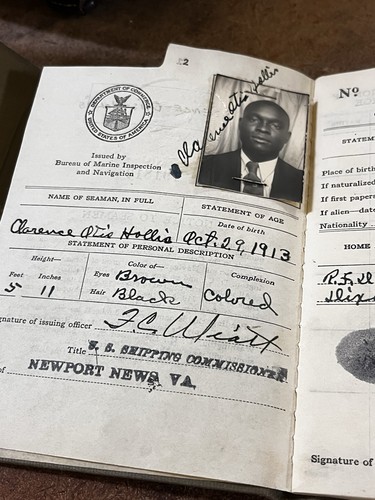 2
DEPARTMENT OF COMMERCE
UNITED STATES OF AMERICA
Issued by
Bureau of Marine Inspection
and Navigation
Clarence Otis Hollis
NAME OF SEAMAN, IN FULL
STATEMENT OF AGE
Date of birth
Clarence Otis Hollis
Oct. 29, 1913
STATEMENT OF PERSONAL DESCRIPTION
Height—
Color of—
Complexion
Feet Inches
Eyes Brown
5 11
Hair Black
Colored
gnature of issuing officer
Title U. S. SHIPPING COMMISSIONER
of NEWPORT NEWS VA.
No
STATEM
Place of birth
If naturalized
If first papers
If alien—date
Nationality
HOME
R.F.D
Signature of